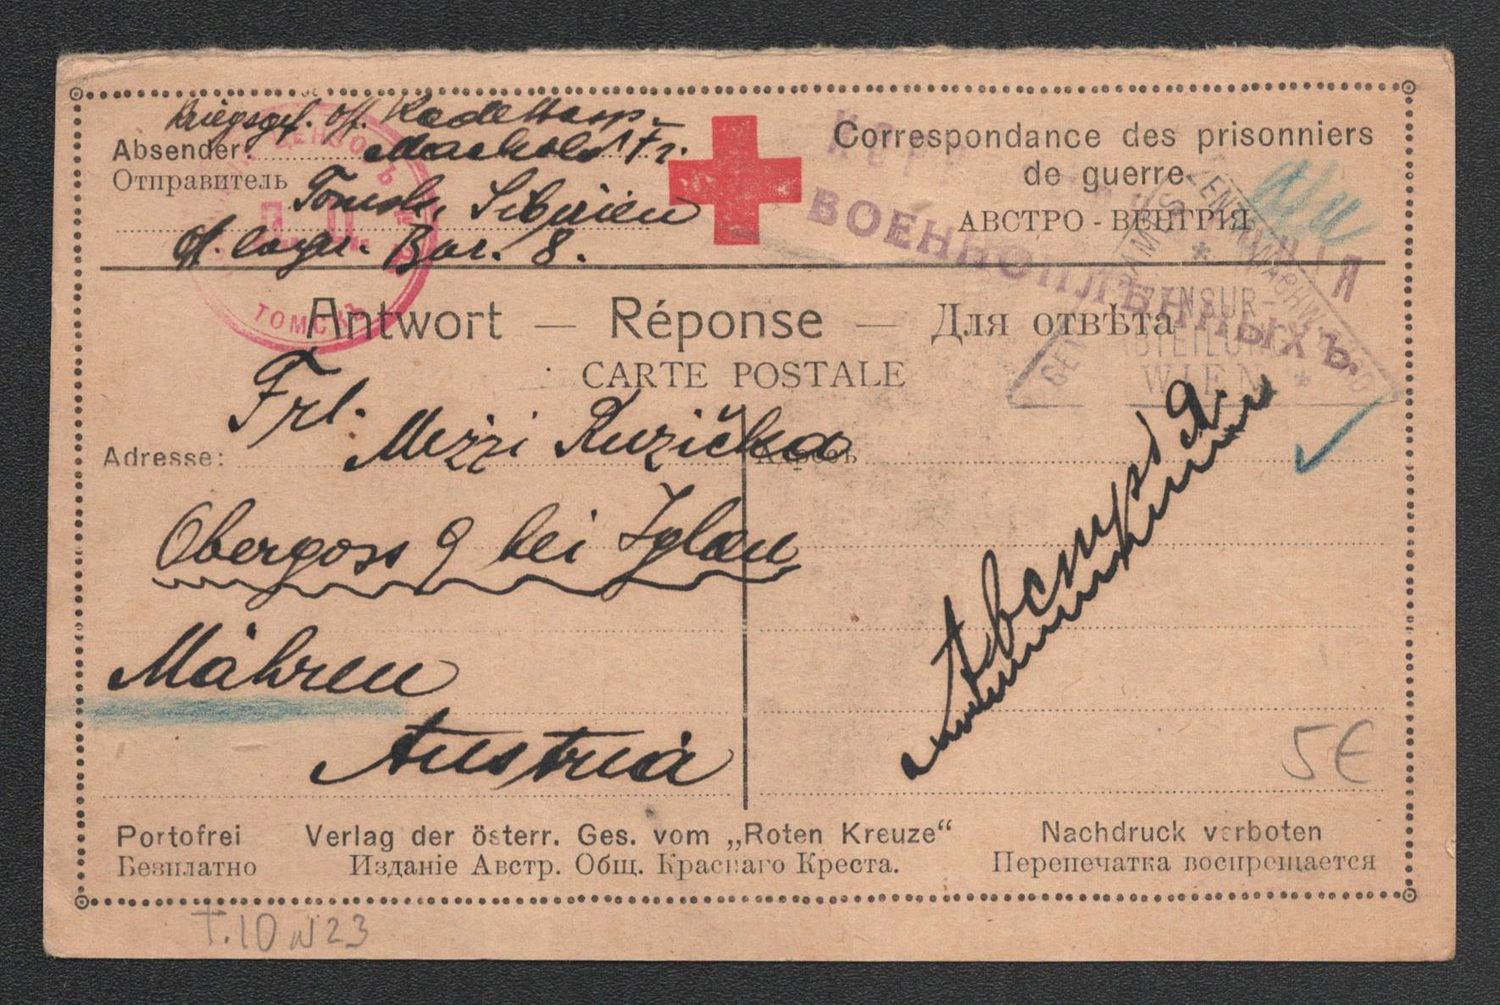 Kriegsgef. Off. Kadettasp.
Absender: Machold Fr.
Отправитель Tomsk, Sibirien
Off. lager. Bar. 8.
ТОМСКЪ
Correspondance des prisonniers
de guerre
АВСТРО - ВЕНГРІЯ
ВОЕННОПЛѢННЫХЪ.
ZENSUR-
WIEN
Antwort — Réponse — Для отвѣта
CARTE POSTALE
Frl.
Adresse: Mizzi Ružička
Адресъ
Obergoss 9 bei Iglau
Mähren
Austria
Австрія
5€
Portofrei Verlag der österr. Ges. vom „Roten Kreuze“ Nachdruck verboten
Безплатно Изданіе Австр. Общ. Краснаго Креста. Перепечатка воспрещается
T.10 N23